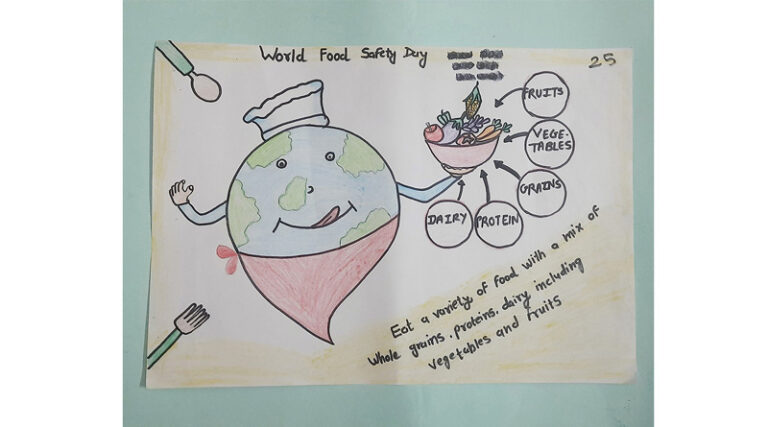 World Food Safety Day
25
FRUITS
VEGE-
TABLES
GRAINS
PROTEIN
DAIRY
Eat a variety of food with a mix of
whole grains. proteins. dairy including
vegetables and fruits